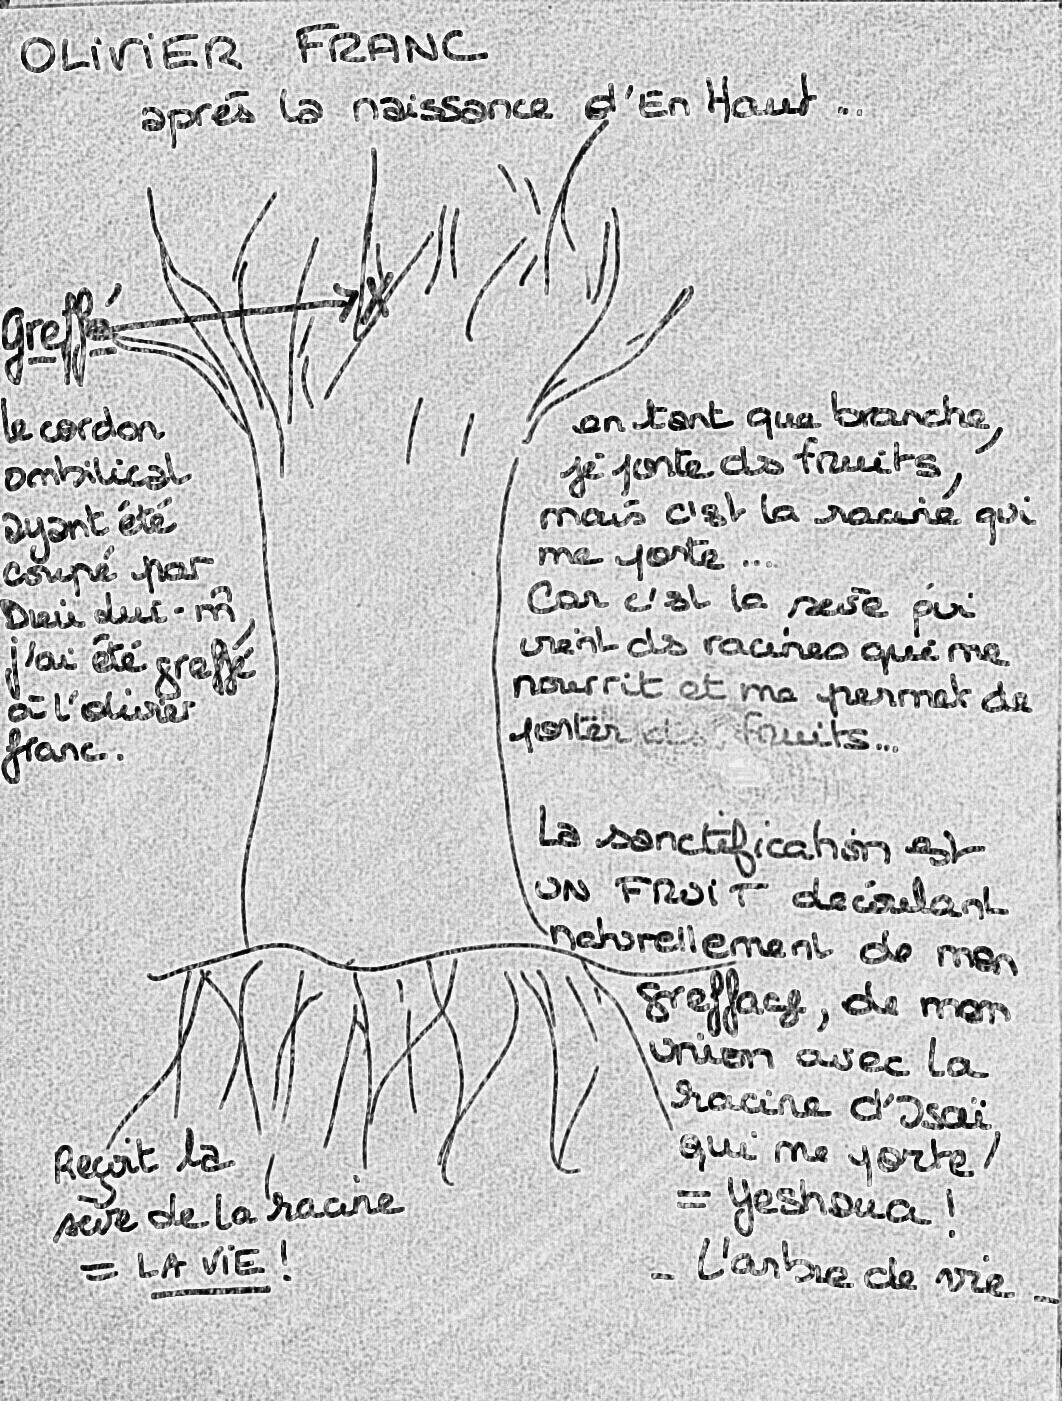 OLIVIER FRANC
après la naissance d'En Haut...
greffé
le cordon
ombilical
ayant été
coupé par
Dieu lui-m̂
j'ai été greffé
à l'olivier
franc..
en tant que branche,
je porte ds fruits,
mais c'est la racine qui
me porte...
Car c'est la sève qui
vient ds racines qui me
nourrit et me permet de
porter ds fruits...
La sanctification est
UN FRUIT découlant
naturellement de mon
greffage, de mon
union avec la
racine d'Isaï
qui me porte!
= Yeshoua!
- L'arbre de vie -
Reçoit la
sève de la racine
= LA VIE!